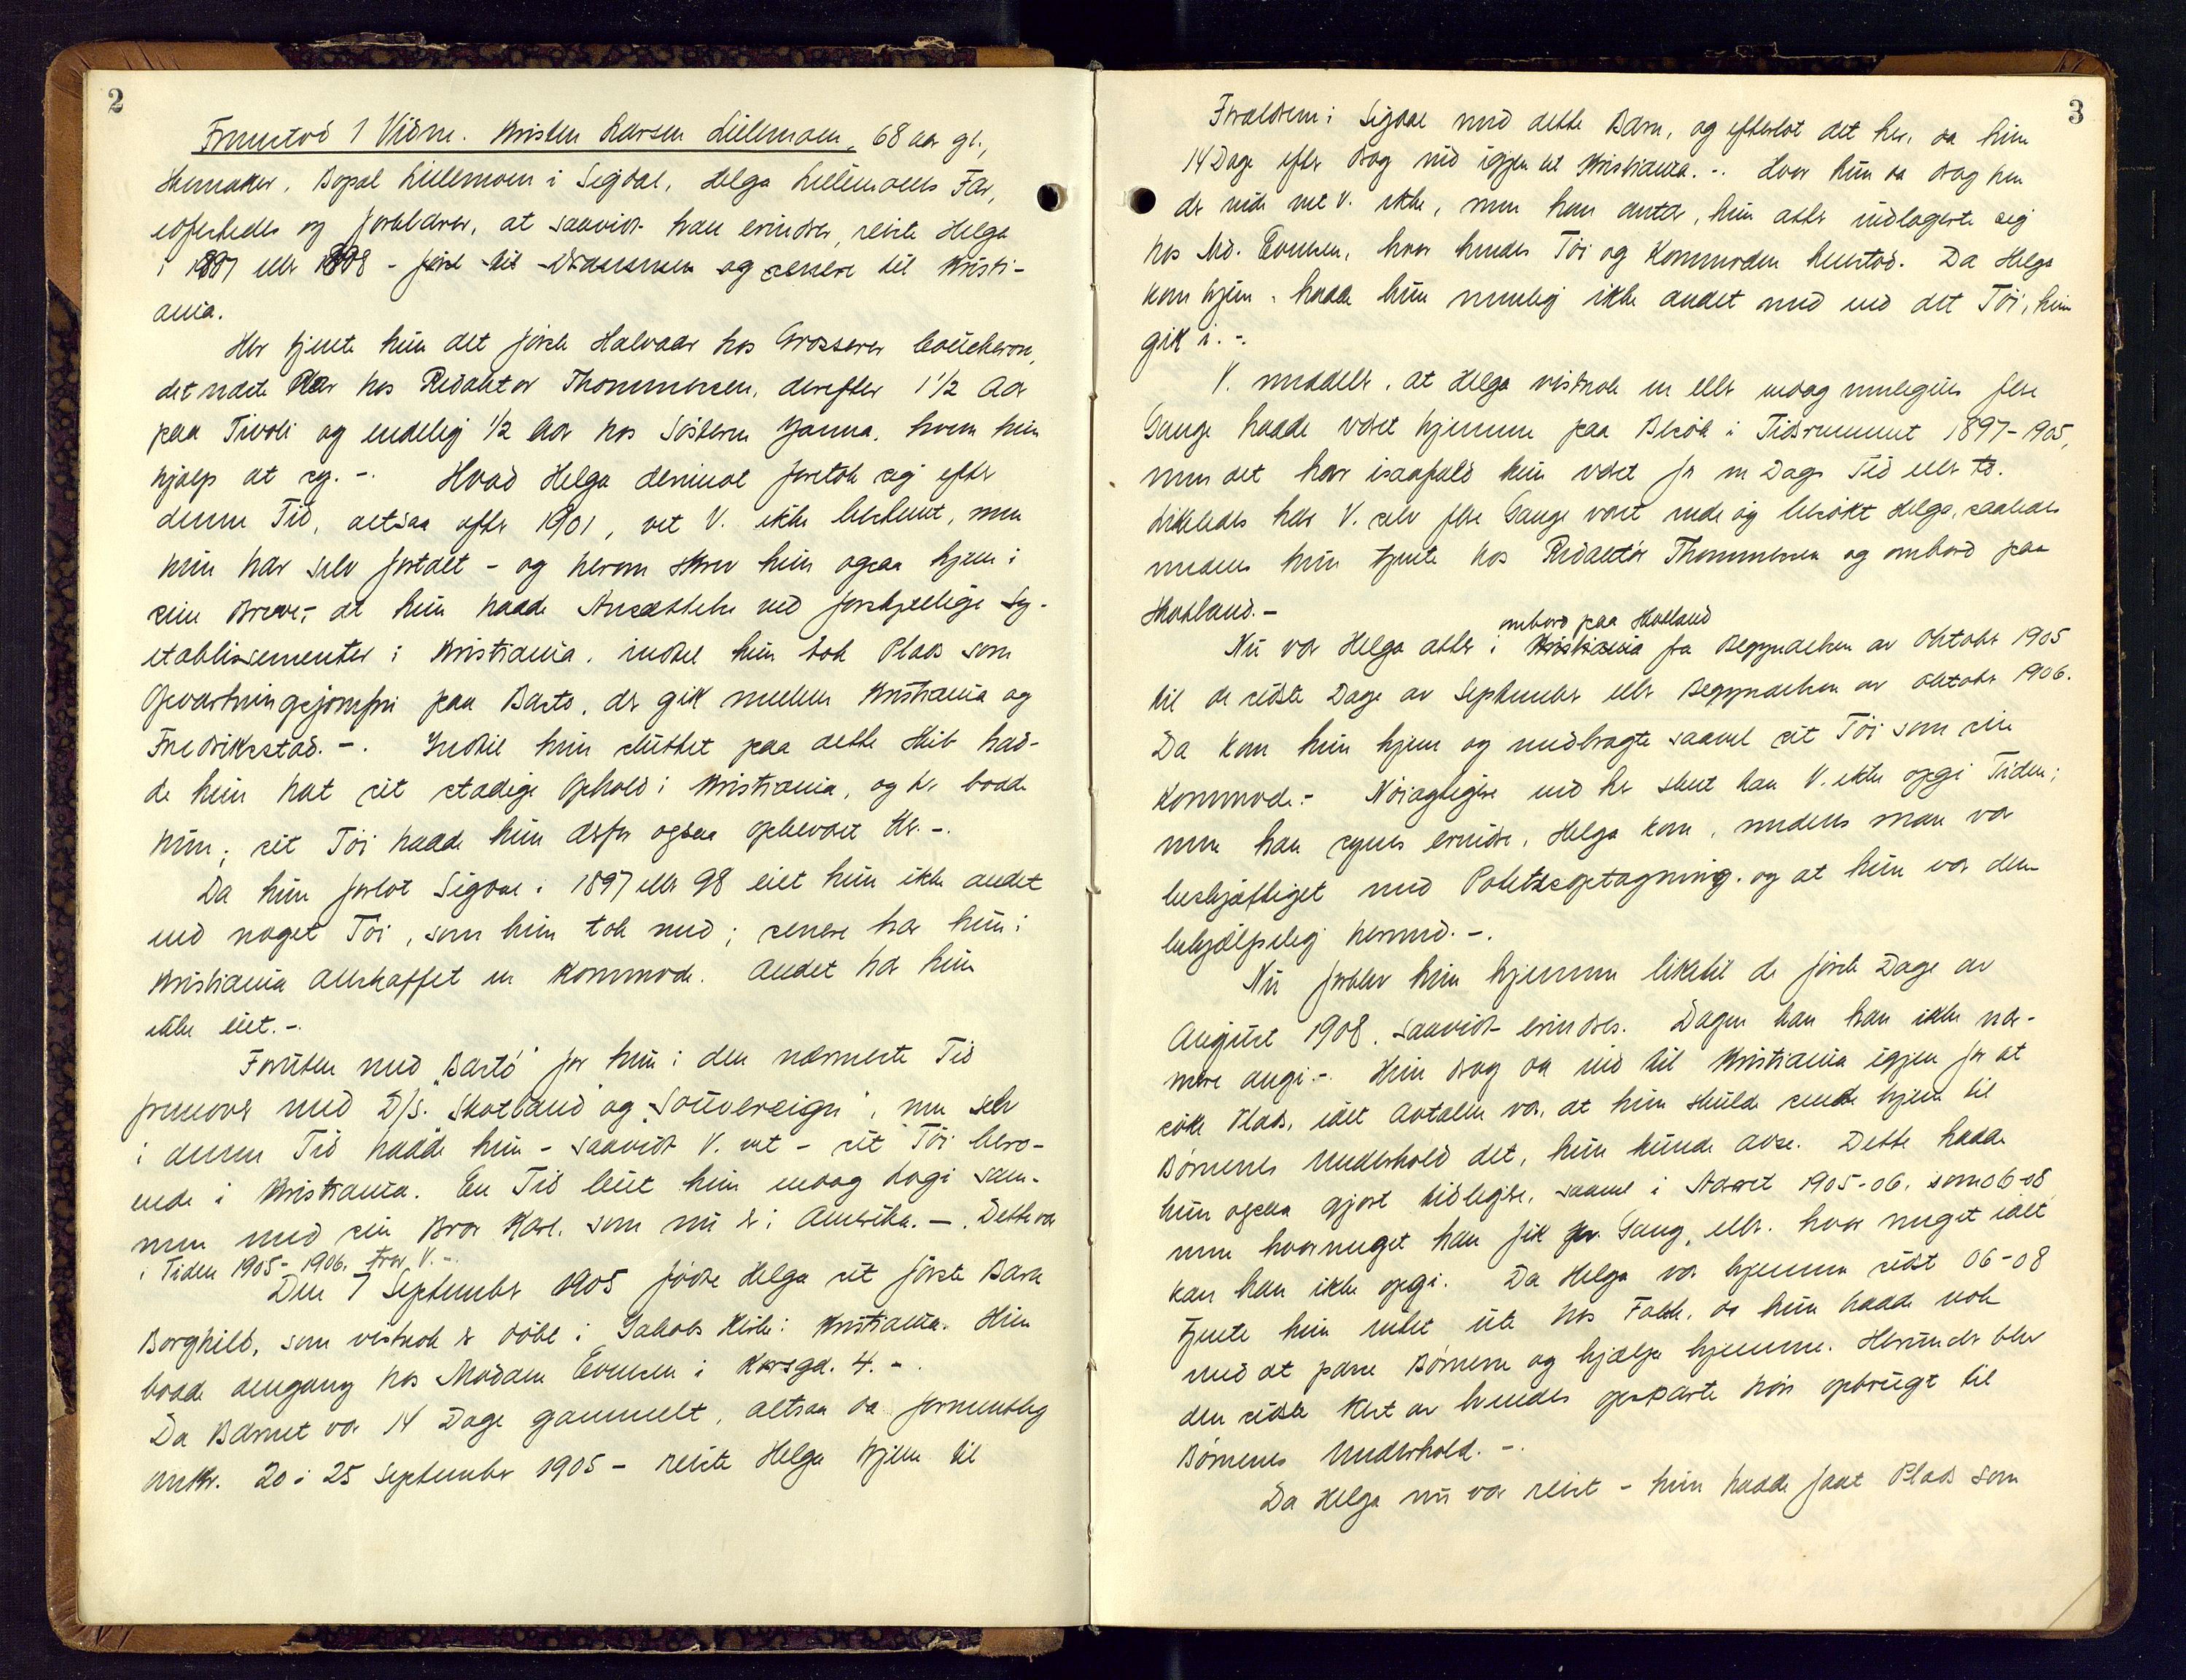 2
Fremstod 1 Vidne. Kristen Larsen Lillemoen, 68 aar gl.,
Skomaker, Bopæl Lillemoen i Sigdal, Helga Lillemoens Far,
edfestedes og forklarer, at saavidt han erindrer, reiste Helga
i 1897 eller 1898 - først til Drammen og senere til Kristi-
ania.
Her tjente hun det første Halvaar hos Grosserer Coucheron,
det næste Aar hos Redaktør Thommessen, derefter 1 1/2 Aar
paa Tivoli og endelig 1/2 Aar hos Søsteren Janna, hvem hun
hjalp at sy. -. Hvad Helga derimot foretok sig efter
denne Tid, altsaa efter 1901, vet V. ikke bestemt, men
hun har selv fortalt - og herom skrev hun ogsaa hjem i
sine Breve,- at hun hadde Ansættelse ved forskjellige Sy-
etablissementer i Kristiania, indtil hun tok Plads som
Opvartningsjomfru paa Bastø, der gik mellem Kristiania og
Fredriksstad. -. Indtil hun sluttet paa dette Skib had-
de hun hat sit stadige Ophold i Kristiania, og her bodde
hun; sit Tøi hadde hun derfor ogsaa opbevaret her. -.
Da hun forlot Sigdal i 1897 eller 98 eiet hun ikke andet
end noget Tøi, som hun tok med; senere har hun i
Kristiania anskaffet en Kommode. Andet har hun
ikke eiet. -.
Foruten med "Bastø" for hun i den nærmeste Tid
fremover med D/S. "Skotland" og "Souvereign", men selv
i denne Tid hadde hun - saavidt V. vet - sit Tøi bero-
ende i Kristiania. En Tid leiet hun endog Logi sam-
men med sin Bror Karl, som nu er i Amerika. -. Dette var
i Tiden 1905-1906, tror V. -.
Den 7 September 1905 fødte Helga sit første Barn
Borghild, som vistnok er døbt i Jakobs Kirke i Kristiania. Hun
bodde dengang hos Madam Evensen i Korsgd. 4. -.
Da Barnet var 14 Dage gammelt, altsaa da formentlig
omkr. 20 à 25 September 1905 - reiste Helga hjem til
3
Forældrene i Sigdal med dette Barn, og efterlot det her, da hun
14 Dage efter drog ned igjen til Kristiania. -. Hvor hun da drog hen
der nede vet V. ikke, men han antar, hun atter indlogerte sig
hos Md. Evensen, hvor hendes Tøi og Kommoden henstod. Da Helga
kom hjem, hadde hun nemlig ikke andet med end det Tøi, hun
gik i. -.
V. meddeler, at Helga vistnok en eller endog muligens flere
Gange hadde været hjemme paa Besøk i Tidsrummet 1897-1905,
men det har isaafald kun været for en Dags Tid eller to.
Likeledes har V. selv flere Gange været nede og besøkt Helga, saaledes
medens hun tjente hos Redaktør Thommessen og ombord paa
Skotland. -
ombord paa Skotland
Nu var Helga atter i Kristiania fra Begyndelsen av Oktober 1905
til de sidste Dage av September eller Begyndelsen av Oktober 1906.
Da kom hun hjem og medbragte saavel sit Tøi som sin
Kommode. - Nøiagtigere end her skeet kan V. ikke opgi Tiden;
men han synes erindre, Helga kom, medens man var
beskjæftiget med Potetesoptagning, og at hun var dem
behjælpelig hermed. -.
Nu forblev hun hjemme liketil de første Dage av
August 1908, saavidt erindres. Dagen kan han ikke nær-
mere angi -. Hun drog da ned til Kristiania igjen for at
søke Plads, idet Avtalen var, at hun skulde sende hjem til
Børnenes Underhold det, hun kunde avse. Dette hadde
hun ogsaa gjort tidligere, saavel i Aaret 1905-06, som 06-08,
men hvormeget han fik pr. Gang, eller hvor meget ialt
kan han ikke opgi. Da Helga var hjemme sidst 06-08
tjente hun intet ute hos Folk, da hun hadde nok
med at passe Børnene og hjælpe hjemme. Herunder blev
den sidste Rest av hendes opsparte Løn opbrugt til
Børnenes Underhold. -.
Da Helga nu var reist - hun hadde faat Plads som